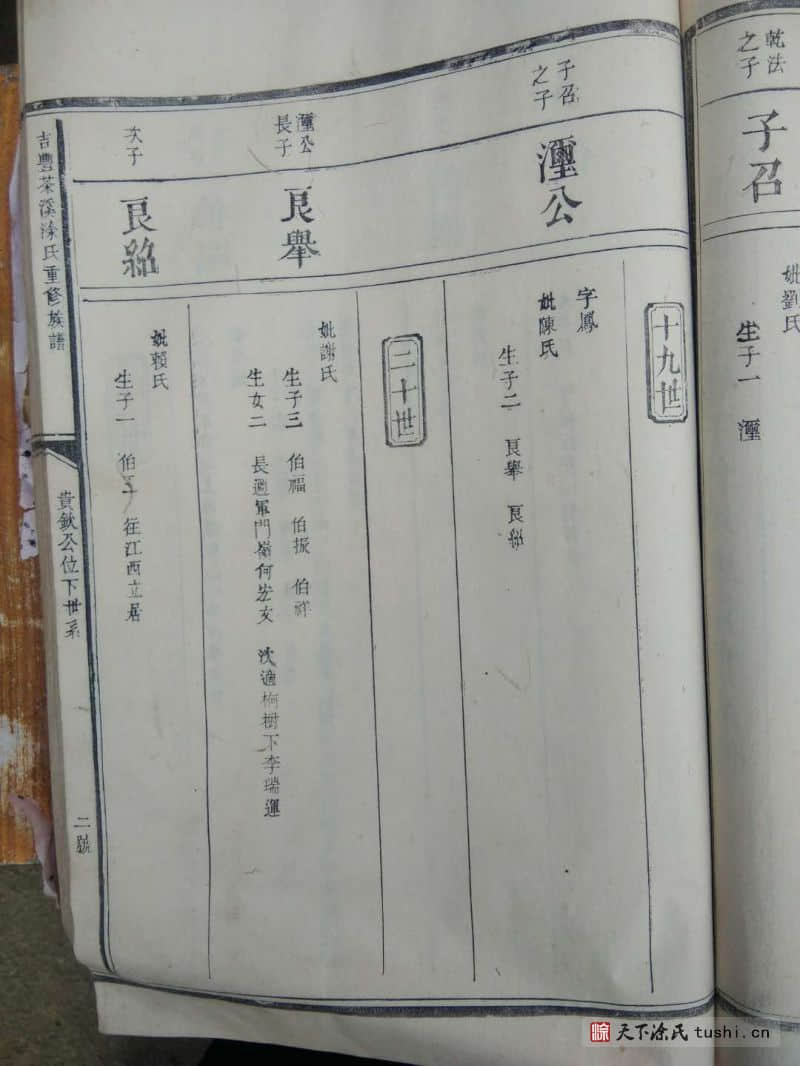 乾法
之子
子召
妣劉氏
生子一 瀍
十九世
子召
之子
瀍公
字鳳
妣陳氏
生子二 良舉 良紹
二十世
瀍公
長子
良舉
妣謝氏
生子三 伯福 伯振 伯祥
生女二 長適軍門嶺何 次適 樹下李瑞運
次子
良紹
妣賴氏
生子一 伯 往江西立居
吉豐茶溪涂氏重修族譜
貴欽公位下世系
二號
涂 天下涂氏 tushi.cn